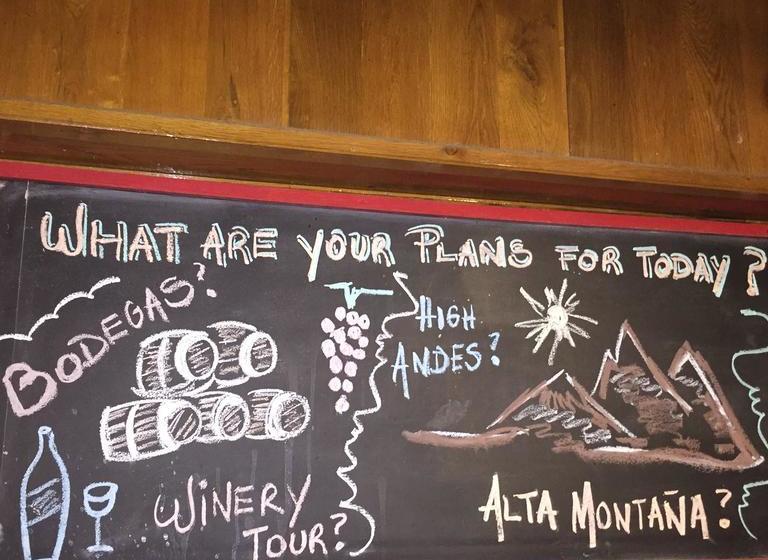 WHAT ARE YOUR PLANS FOR TODAY?
BODEGAS?
WINERY
TOUR?
HIGH
ANDES?
ALTA MONTAÑA?